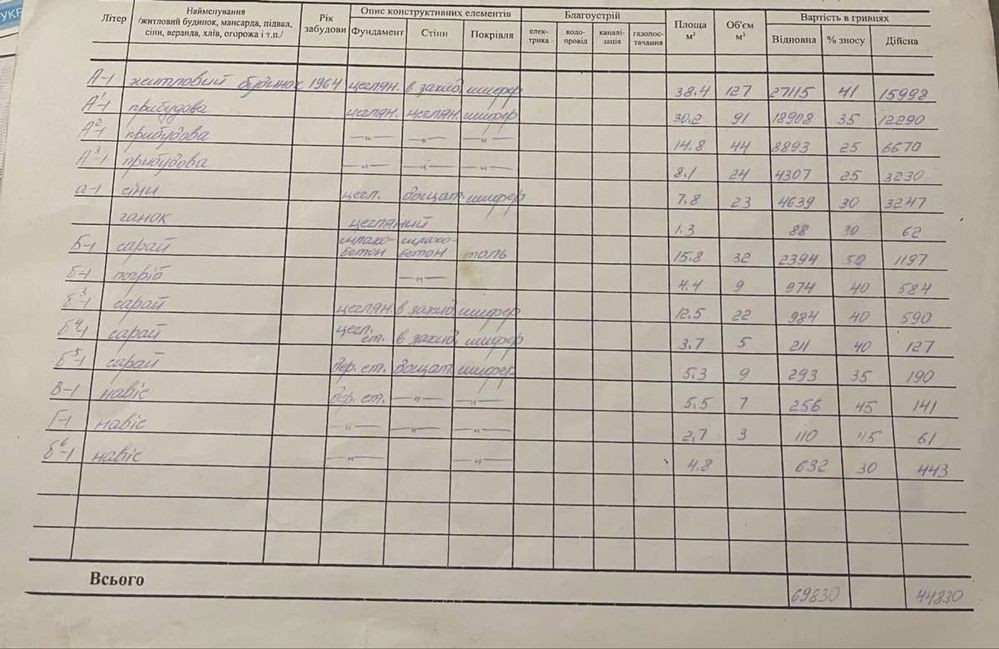 УКР
Літер Найменування /житловий будинок, мансарда, підвал, сіни, веранда, хлів, огорожа і т.п./ Рік забудови Опис конструктивних елементів Благоустрій Площа м² Об'єм м³ Вартість в гривнях
Фундамент Стіни Покрівля елек-трика водо-провід каналі-зація газопос-тачання Відновна % зносу Дійсна
А-1 житловий будинок 1964 цеглян. в захид шифер 38.4 127 27115 41 15998
А¹-1 прибудова цеглян. цеглян. шифер 30.2 91 18908 35 12290
А²-1 прибудова —"— —"— —"— 14.8 44 8893 25 6670
А³-1 прибудова —"— —"— —"— 8.1 24 4307 25 3230
а-1 сіни цегл. дощат. шифер 7.8 23 4639 30 3247
ганок цегляний 1.3 88 30 62
Б-1 сарай шлако-бетон шлако-бетон толь 15.8 32 2394 50 1197
б-1 погріб —"— 4.4 9 974 40 584
б³-1 сарай цеглян. в захид шифер 12.5 22 984 40 590
б⁴-1 сарай цегл. ст. в захид шифер 3.7 5 211 40 127
б⁵-1 сарай дер. ст. дощат. шифер 5.3 9 293 35 190
В-1 навіс дер. ст. —"— —"— 5.5 7 256 45 141
Г-1 навіс —"— —"— —"— 2.7 3 110 45 61
б⁶-1 навіс —"— —"— 4.8 632 30 443
Всього 69830 44830